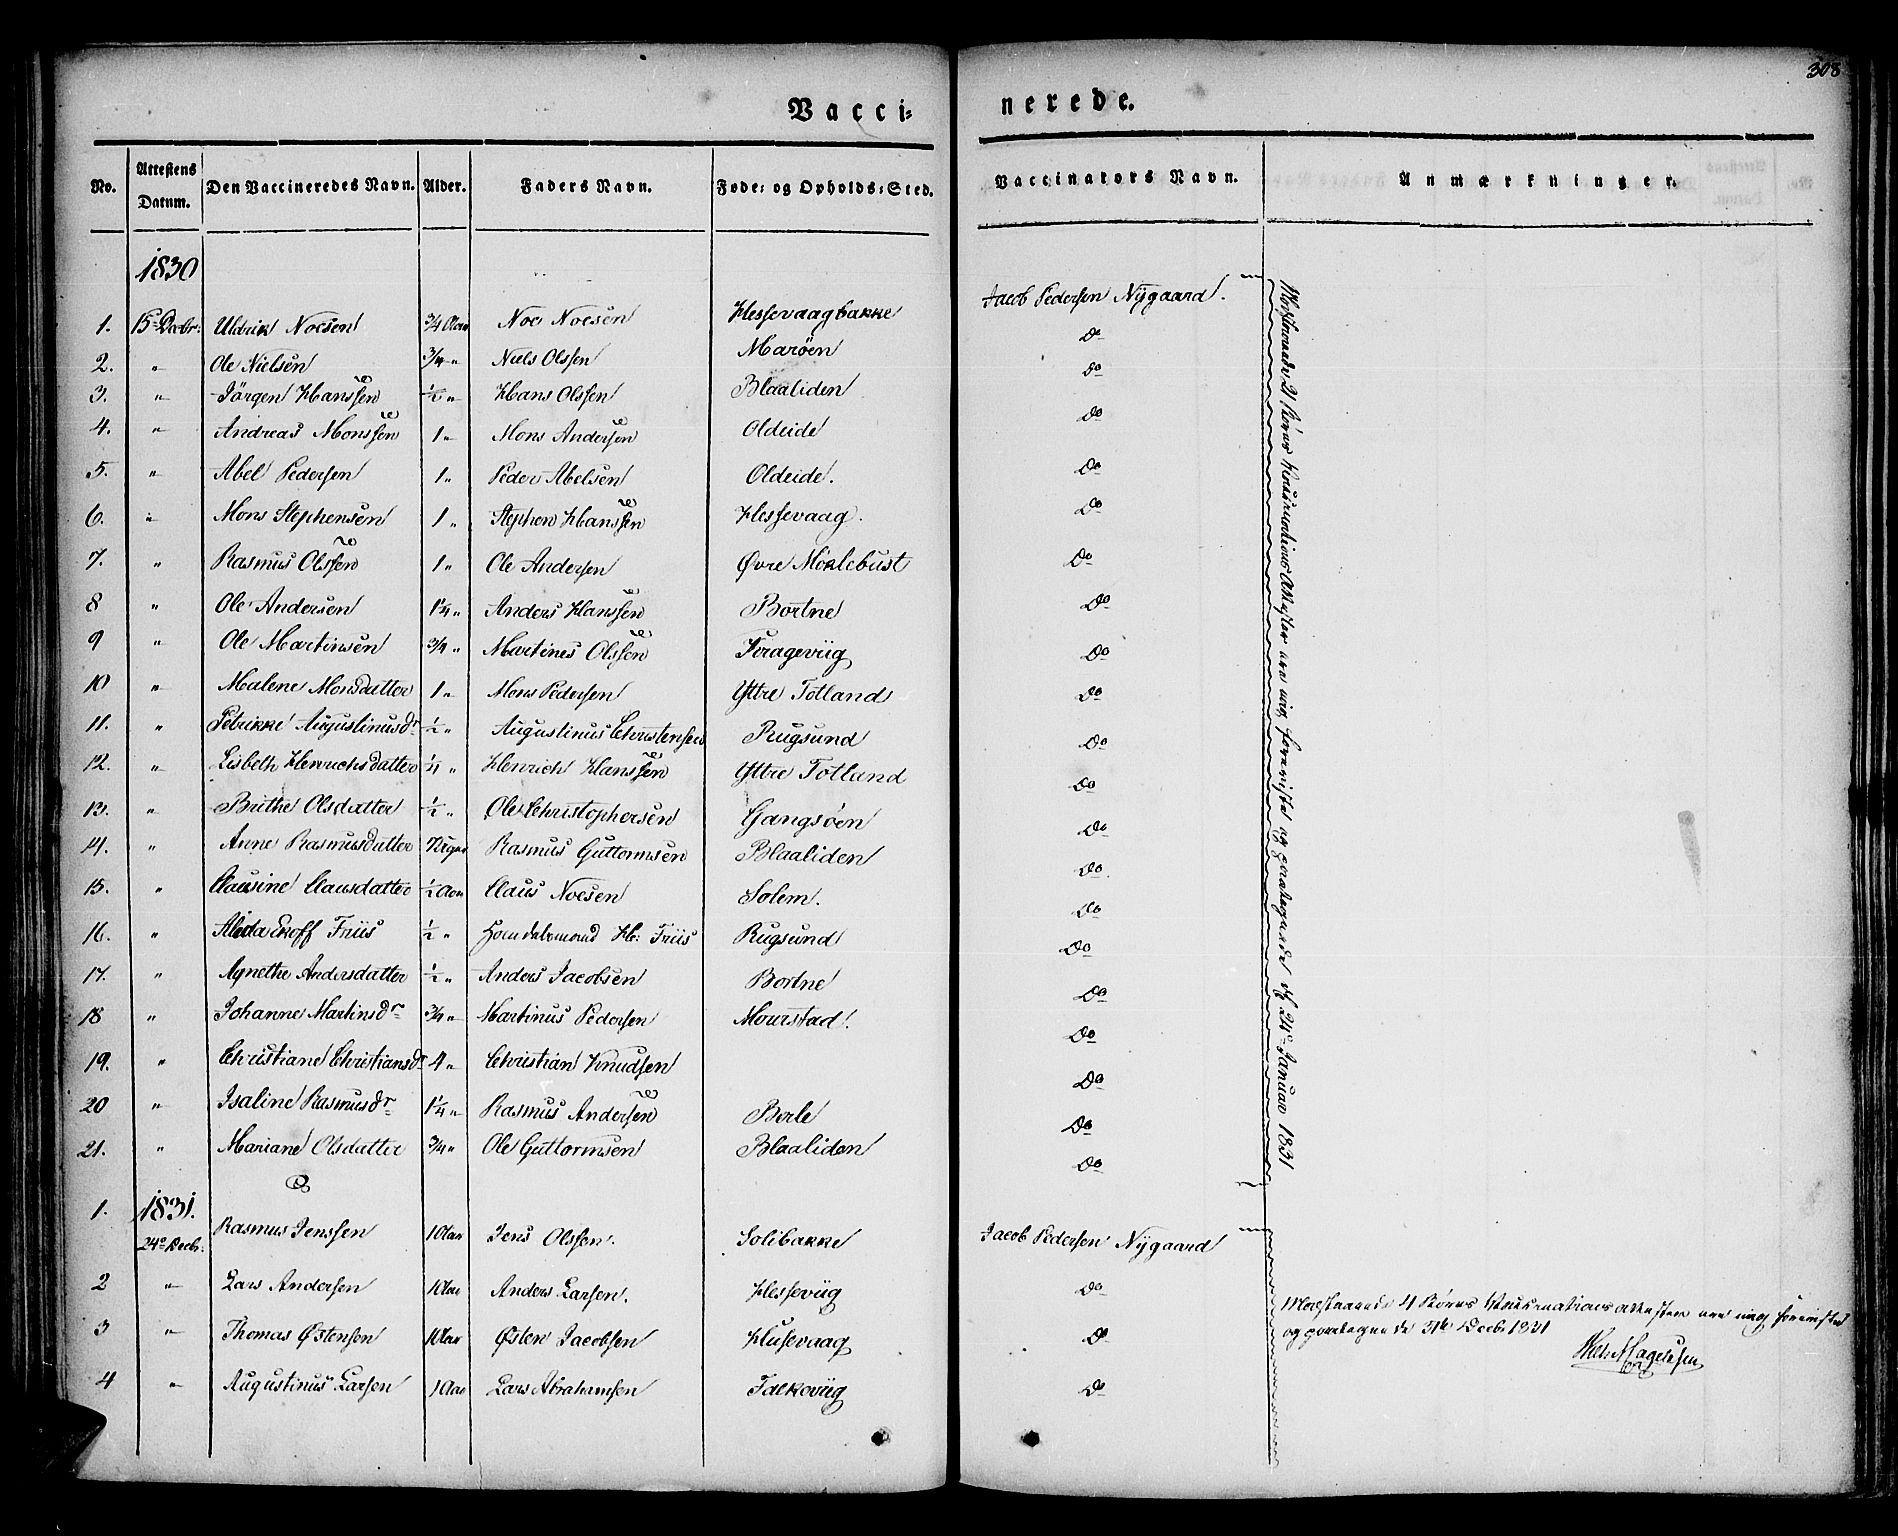 308
Vacci-
nerede.
No. Attestens Datum. Den Vaccineredes Navn. Alder. Faders Navn. Føde- og Opholds-Sted. Vaccinators Navn. Anmærkninger.
1830
1. 15de Decbr: Uldrik Noesen 3/4 Aar Noe Noesen Hessevaagbakke Jacob Pedersen Nygaard.
2. " Ole Nielsen 3/4 " Niels Olssen Marøen Do
3. " Jörgen Hanssen 1/2 " Hans Olssen Blaaliden Do
4. " Andreas Monssen 1 " Mons Andersen Oldeide Do
5. " Abel Pedersen 1 " Peder Abelsen Oldeide. Do
6. " Mons Stephensen 1 " Stephen Hanssen Hessevaag. Do
7. " Rasmus Olssen 1 " Ole Andersen Øvre Moklebust Do
8 " Ole Andersen 1 1/4 " Anders Hanssen Bortne Do
9 " Ole Martinsen 3/4 " Martines Olssen Do
10 " Malene Monsdatter 1 " Mons Pedersen Yttre Totland Do
11. " Petrikke Augustinusdr 1/2 " Augustinus Christensen Rugsund Do
12. " Lisbeth Henrichsdatter 1/4 " Henrich Hanssen Yttre Totland Do
13. " Brithe Olsdatter 1/2 " Ole Christophersen Gangsøen Do
14. " Anne Rasmusdatter Rasmus Guttormsen Blaaliden Do
15. " Clausine Clausdatter 1/2 Aar Claus Noesen Solem. Do
16. " Alida Friis 1/2 " Friis Rugsund Do
17. " Agnethe Andersdatter 1/2 " Anders Jacobsen Bortne Do
18 " Johanne Martinsdr 3/4 " Martinus Pedersen Mourstad. Do
19. " Christiane Christiansdr 4 " Christian Knudsen Do
20 " Isaline Rasmusdr 1 1/4 " Rasmus Andersen Borle Do
21. " Mariane Olsdatter 3/4 " Ole Guttormsen Blaaliden Do
24de Januar 1831
1831.
1. 24de Decb. Rasmus Jenssen 1 Aar Jens Olssen. Solibakke Jacob Pedersen Nygaard
2 " Lars Andersen 1 Aar Anders Larsen. Hesseviig Do
3 " Thomas Østensen 1 Aar Østen Jacobsen Husevaag Do
4 " Augustinus Larsen 1 Aar Lars Abrahamsen Falkeviig Do
Meststaaende 4 Børns Vaccinations Attester ere mig foreviste
og 31te Decb. 1831